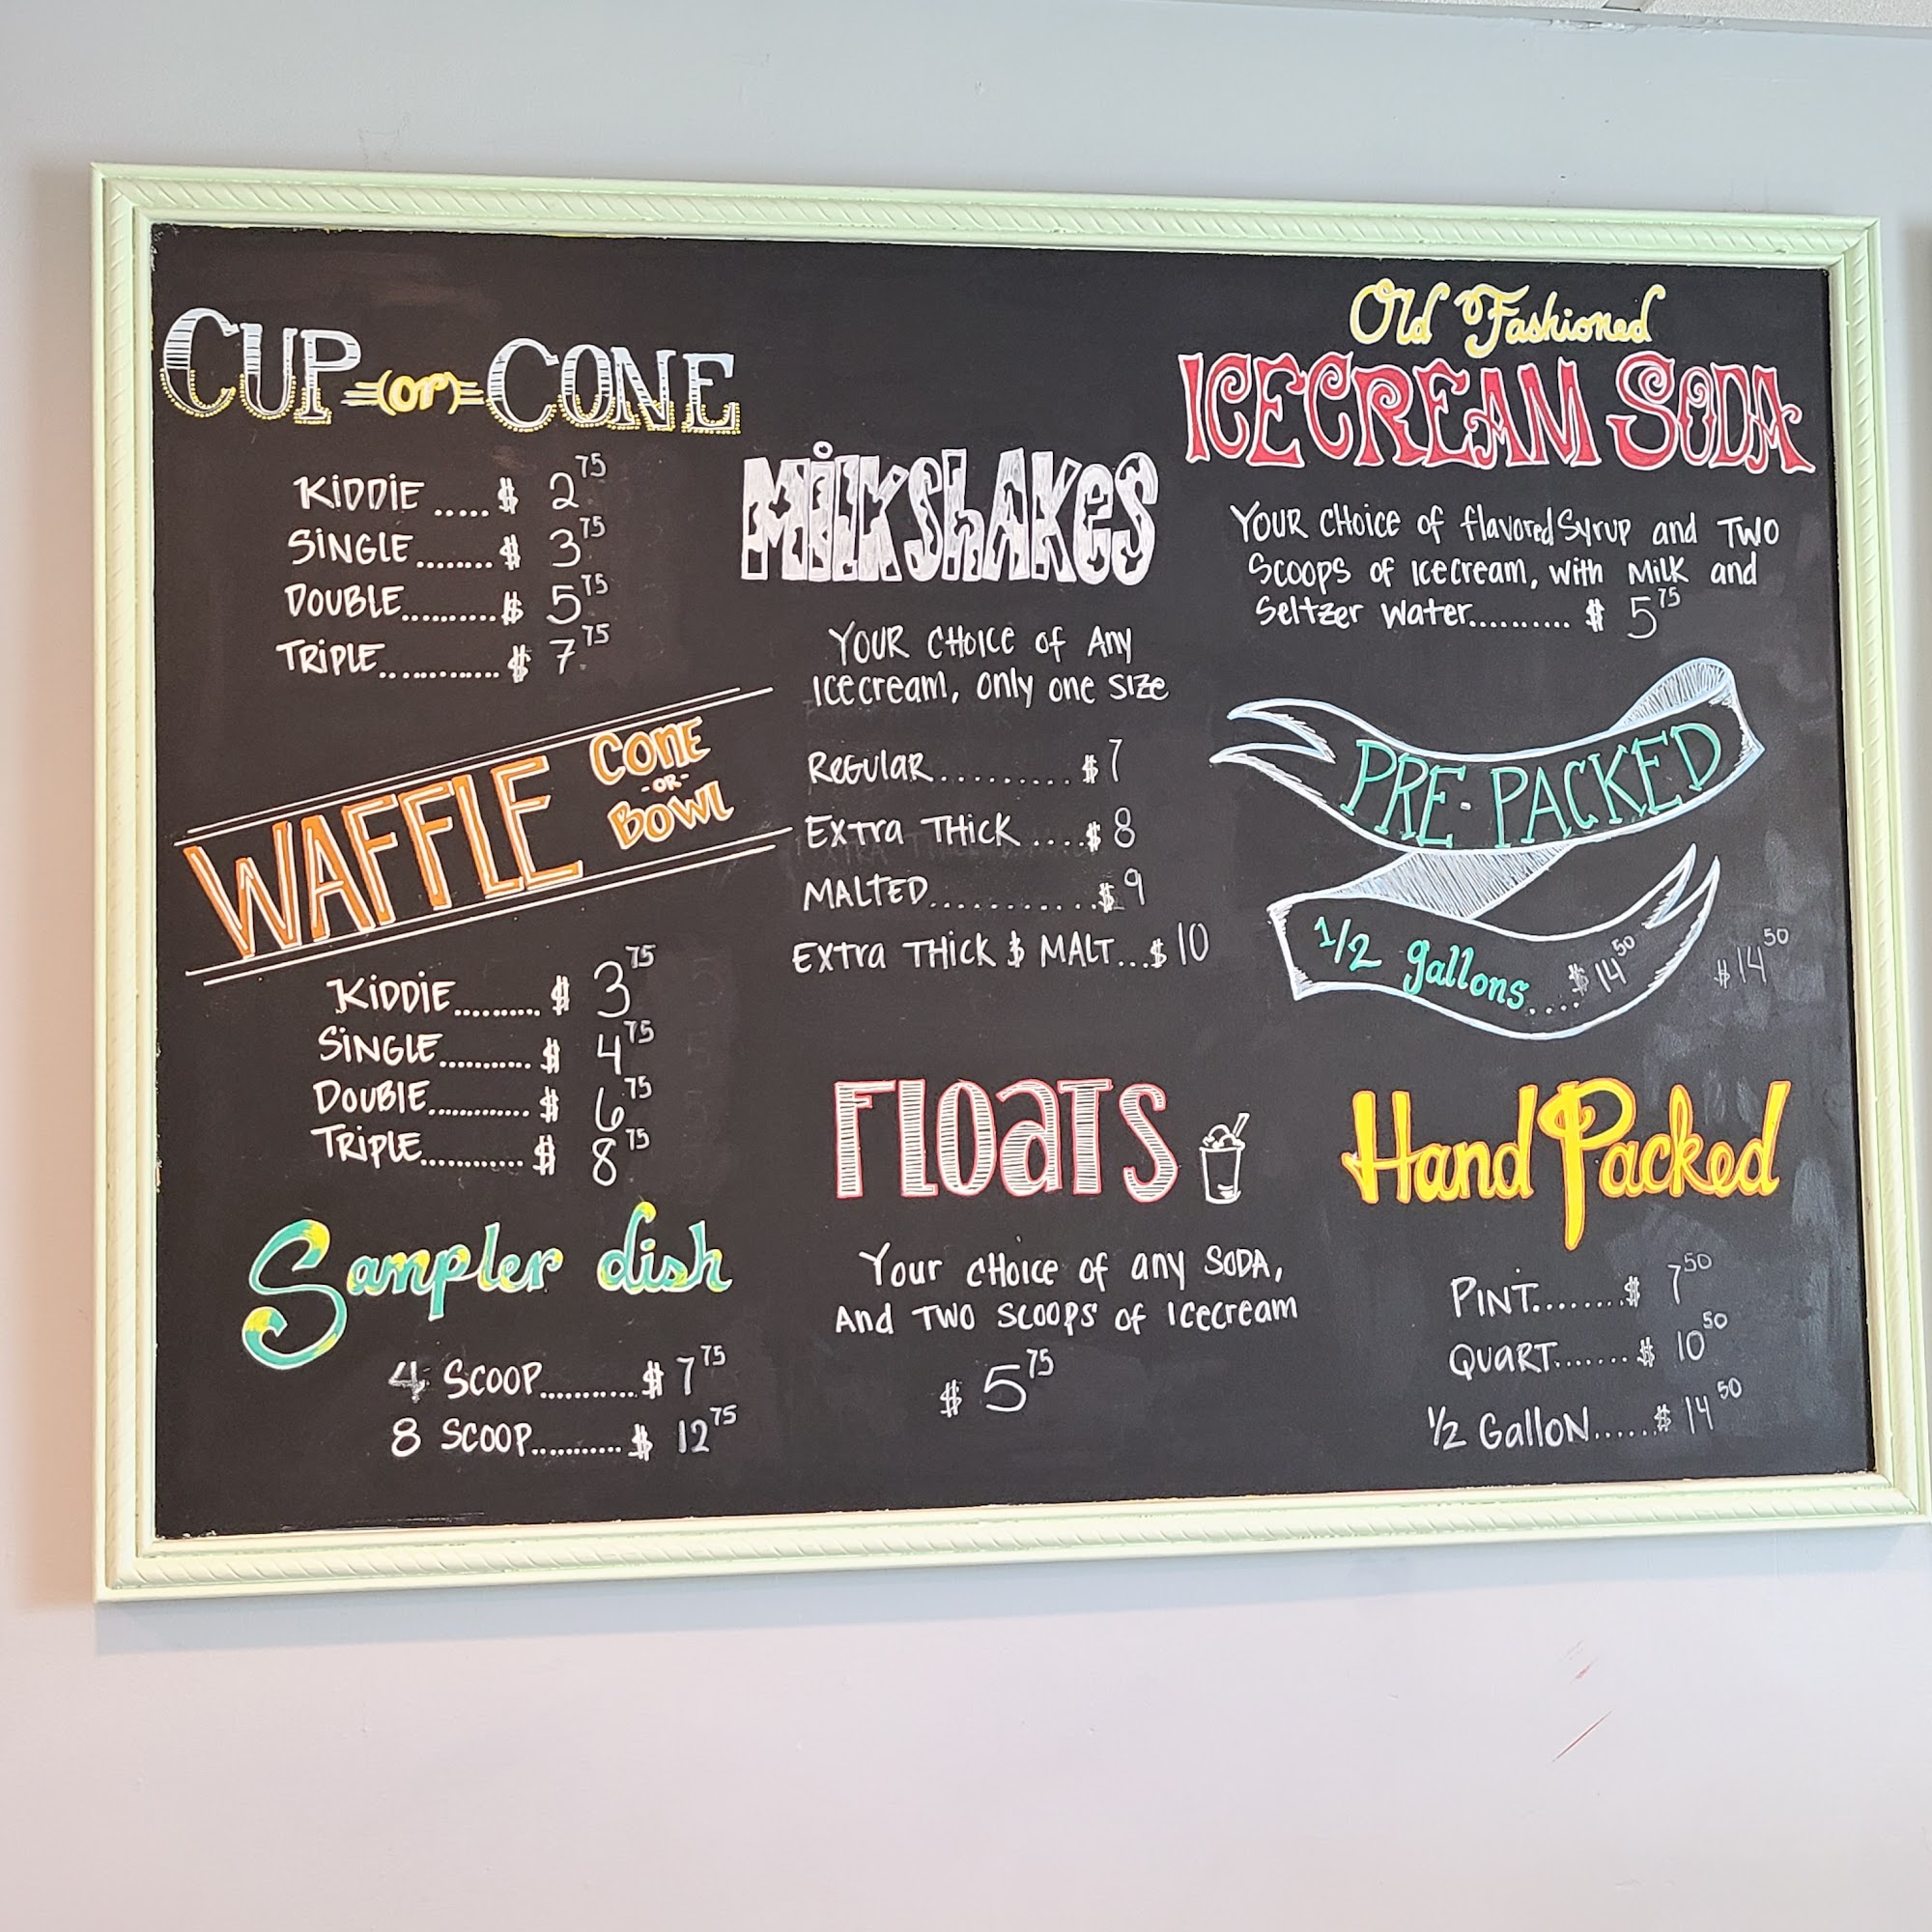 CUP (or) CONE
KIDDIE ..... $ 2.75
SINGLE ........ $ 3.75
DOUBLE .......... $ 5.75
TRIPLE ............. $ 7.75
WAFFLE CONE
-OR-
BOWL
KIDDIE .......... $ 3.75
SINGLE ........... $ 4.75
DOUBLE ............. $ 6.75
TRIPLE ............ $ 8.75
Sampler dish
4 SCOOP ........... $ 7.75
8 SCOOP ........... $ 12.75
MilkshAkes
YOUR CHOICE of Any
Icecream, only one size
Regular ......... $ 7
Extra THick .... $ 8
MALTED ........... $ 9
Extra THick & MALT ... $ 10
FLOaTS
Your cHoice of any SODA,
And TWO scoops of Icecream
$ 5.75
Old Fashioned
ICECREAM SODA
YOUR CHoice of flavored Syrup and TWO
Scoops of Icecream, with Milk and
Seltzer Water .......... $ 5.75
PRE-PACKED
1/2 gallons .... $14.50 $14.50
Hand Packed
PINT ........ $ 7.50
QUART ....... $ 10.50
1/2 GallON ...... $ 14.50